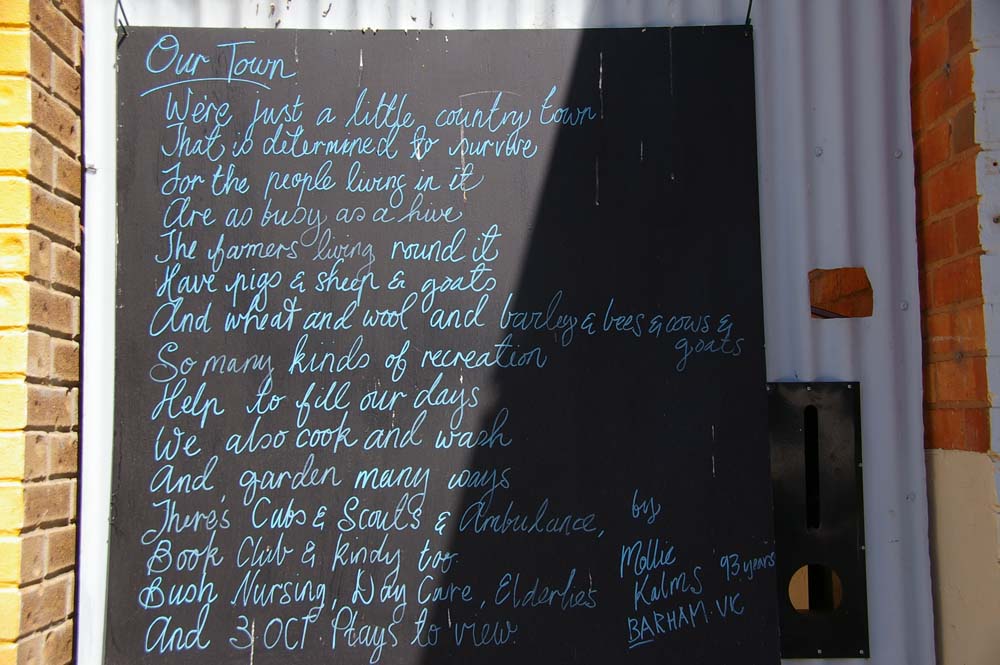 Our Town
We're just a little country town
That is determined to survive
For the people living in it
Are as busy as a hive
The farmers living round it
Have pigs & sheep & goats
And wheat and wool and barley & bees & cows &
goats
So many kinds of recreation
Help to fill our days
We also cook and wash
And garden many ways
There's Cubs & Scouts & Ambulance,
Book Club & Kindy too.
Bush Nursing, Day Care, Elderlies
And 3 OCT Plays to view.
by
Mollie
Kalms 93 years
BARHAM. VIC